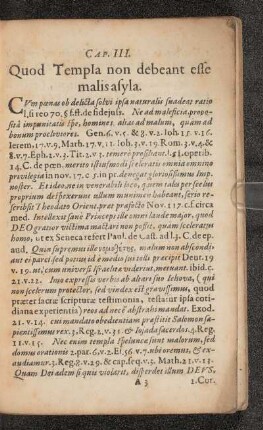 CAP. III.
Quod Templa non debeant esse
malis asyla.
CVm pœnas ob delicta solvi ipsa naturalis suadeat ratio
l. si reo 70. § Est. de fidejuss. Ne ad maleficia, propo-
sitâ impunitatis spe, homines, aliàs ad malum, quàm ad
bonum procliviores. Gen. 6. v. 5. & 8. v. 2. Ioh. 15. v. 16.
Ierem. 17. v. 9, Math. 17. v. 11. Ioh. 3. v. 19. Rom. 3. v. 4. &
8. v. 7. Eph. 2. v. 3. Tit. 2. v. 3. temerè
14. C. de pœn. meritò ejusmodi sceleratis omnia omnino
privilegia in nov. 17. c. 5. in pr. denegat gloriosissimus Imp.
noster. Et ideo ne in venerabili loco, quem talis per scelus
proprium despexerunt ullum munimen habeant, seriò re-
scribit Theodoro Orient. præf. præfecto Nov. 117. c. f. circa
med. Intellexit sanè Princeps ille omer lande major, quod
DEO gratior victima mactari non possit, quàm sceleratus
homo, ut ex Seneca tester Paul. de Cast. ad l. 3. C. de ep.
aud. Quin supremus ille malum non abscondi-
ant ei parci, sed potius id è medio sui tolli præcipit Deut. 19
v. 19. ut, cum universi Israelitæ viderint, metuant. ibid. c.
21. v. 22. Imò expressis verbis ab altari suo Iehova, (qui
non scelerum protector, sed vindex est gravissimus, quod
præter sacræ scripturæ testimonia, testatur ipsa coti-
diana experientia) reos ad necē abstrahi mandat. Exod.
21. v. 14. cui mandato obedientiam præstitit Salomon sa-
pientissimus rex 3. Reg. 2. v. 31. & Iojada sacerdos. 4. Reg.
11. v. 15. Nec enim templa speluncæ sunt malorum, sed
domus orationis 2. par. 6. v. 2. Ei. 56. v. 7. ubi oremus, & ex-
audiamur. 3. Reg. 8. v. 29. & cap. seq. v. 3. Math. 21. v. 13.
Quam Dei ædem si quis violarit, disperdet illum DEVS.
A 3 1. Cor.